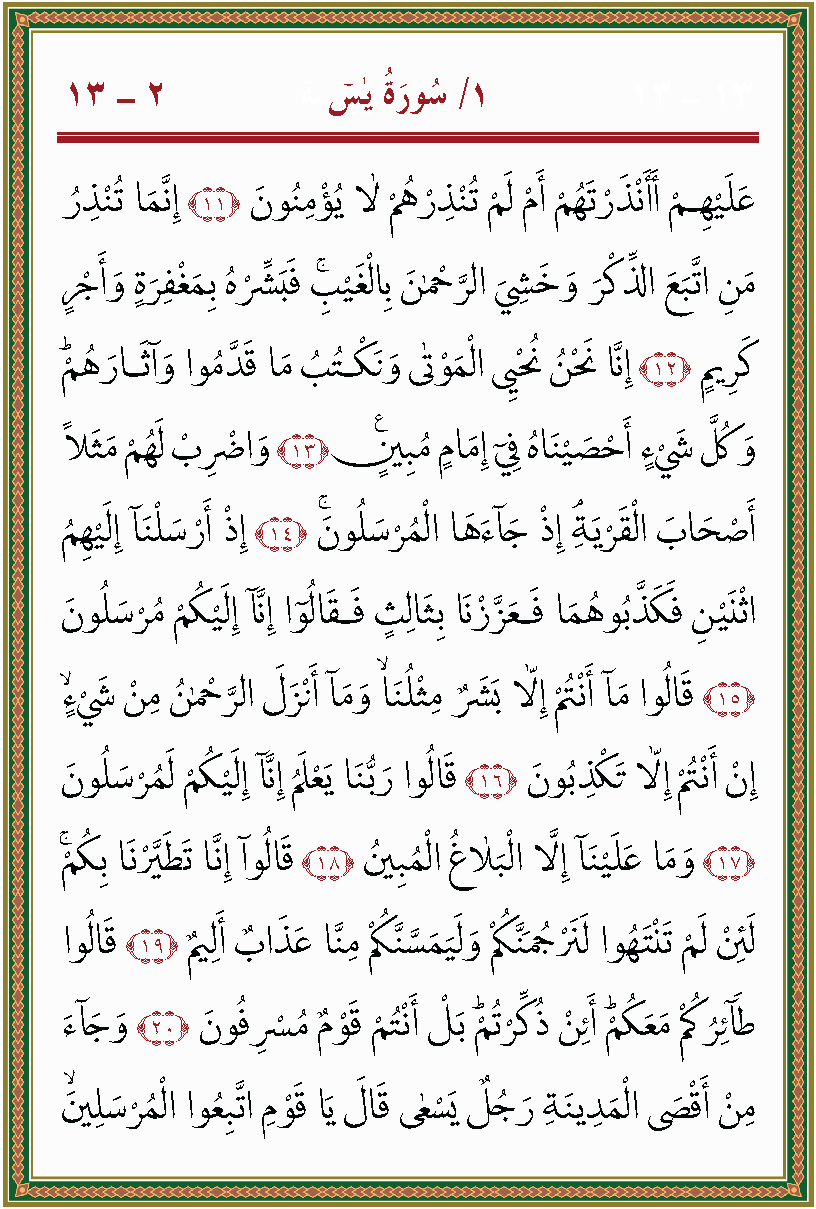 ١/ سُورَةُ يٰسٓ ٢ - ١٣
عَلَيْهِمْ أَأَنْذَرْتَهُمْ أَمْ لَمْ تُنْذِرْهُمْ لاٰ يُؤْمِنُونَ ﴿١١﴾ إِنَّمَا تُنْذِرُ
مَنِ اتَّبَعَ الذِّكْرَ وَخَشِيَ الرَّحْمٰنَ بِالْغَيْبِۚ فَبَشِّرْهُ بِمَغْفِرَةٍ وَأَجْرٍ
كَرِيمٍ ﴿١٢﴾ إِنَّا نَحْنُ نُحْيِي الْمَوْتٰى وَنَكْتُبُ مَا قَدَّمُوا وَآثَارَهُمْؕ
وَكُلَّ شَيْءٍ أَحْصَيْنَاهُ فِيٓ إِمَامٍ مُبِينٍ ۧ ﴿١٣﴾ وَاضْرِبْ لَهُمْ مَثَلاً
أَصْحَابَ الْقَرْيَةِۘ إِذْ جَآءَهَا الْمُرْسَلُونَۚ ﴿١٤﴾ إِذْ أَرْسَلْنَآ إِلَيْهِمُ
اثْنَيْنِ فَكَذَّبُوهُمَا فَعَزَّزْنَا بِثَالِثٍ فَقَالُوٓا إِنَّآ إِلَيْكُمْ مُرْسَلُونَ
﴿١٥﴾ قَالُوا مَآ أَنْتُمْ إِلّاٰ بَشَرٌ مِثْلُنَاۙ وَمَآ أَنْزَلَ الرَّحْمٰنُ مِنْ شَيْءٍۙ
إِنْ أَنْتُمْ إِلّاٰ تَكْذِبُونَ ﴿١٦﴾ قَالُوا رَبُّنَا يَعْلَمُ إِنَّآ إِلَيْكُمْ لَمُرْسَلُونَ
﴿١٧﴾ وَمَا عَلَيْنَآ إِلَّا الْبَلاٰغُ الْمُبِينُ ﴿١٨﴾ قَالُوٓا إِنَّا تَطَيَّرْنَا بِكُمْۚ
لَئِنْ لَمْ تَنْتَهُوا لَنَرْجُمَنَّكُمْ وَلَيَمَسَّنَّكُمْ مِنَّا عَذَابٌ أَلِيمٌ ﴿١٩﴾ قَالُوا
طَآئِرُكُمْ مَعَكُمْؕ أَئِنْ ذُكِّرْتُمْؕ بَلْ أَنْتُمْ قَوْمٌ مُسْرِفُونَ ﴿٢٠﴾ وَجَآءَ
مِنْ أَقْصَى الْمَدِينَةِ رَجُلٌ يَسْعٰى قَالَ يَا قَوْمِ اتَّبِعُوا الْمُرْسَلِينَۙ